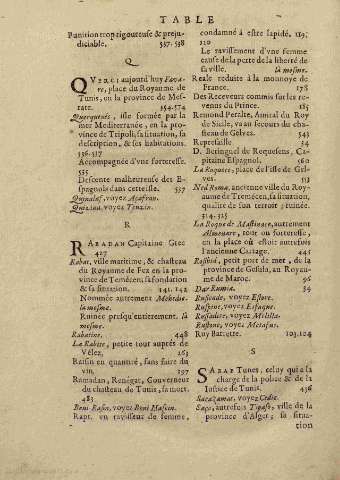 TABLE
Punition trop rigoureuse & preju-
diciable. 557-558
Q
Place du Royaume de
Tunis, en la province de Mef-
rate. 554-574
Querquenés, isle formée par la
mer Mediterranée, en la pro-
vince de Tripoli, sa situation, sa
description, & ses habitations.
536-537
Accompagnée d'une forteresse.
535
Descente malheureuse des E-
spagnols dans cette isle. 537
Quinalaf, voyez Açafran.
Quizina, voyez Tenzin.
R
RABADAN Capitaine Grec
427
Rabat, ville maritime, & chasteau
du Royaume de Fez en la pro-
vince de Temécen, sa fondation
& sa situation. 141. 142
Nommée autrement Mehedie.
la mesme.
Ruinée presqu'entierement. la
mesme.
Rabatine. 448
La Rabite, petite tour auprés de
Vélez. 263
Raisin en quantité, sans faire du
vin. 197
Ramadan, Renégat, Gouverneur
du chasteau de Tunis, sa mort.
483
Beni Rasin, voyez Beni Hascin.
Rapt, un ravisseur de femme,
condamné à estre lapidé. 119;
120
Le ravissement d'une femme
cause de la perte de la liberté de
sa ville. la mesme.
Reale reduite à la monnoye de
France. 178
Des Receveurs commis sur les re-
venus du Prince. 185
Remond Peralte, Amiral du Roy
de Sicile, va au secours du chas-
teau de Gelves. 543
Represaille 54
D. Beringuel de Requesens, Ca-
pitaine Espagnol. 560
La Roquete, place de l'isle de Gel-
ves. 553
Ned Roma, ancienne ville du Roy-
aume de Tremécen, sa situation,
qualité de son terroit & ruinée.
324-325
La Roque de Mastinace, autrement
tour ou forteresse,
en la place où estoit autrefois
l'ancienne Carthage.
petit port de mer, de la
province de Gesula, au Royau-
me de Maroc. 96
Dar Rumia. 59
Ruscade, voyez Estore.
voyez Esfaque.
Rusadire, voyez Melilla.
Rusconie, voyez Metafus.
Ruy Barrette. 103.104
S
SAHAB TUNES, celuy qui a la
charge de la police & de la
Justice de Tunis. 456
Sacazamar, voyez Cedie.
Saço, autrefois Tigase, ville de la
province d'Alger; sa situa-
tion